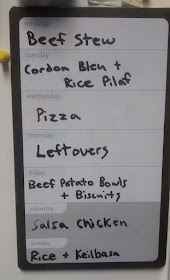 monday
Beef Stew
tuesday
Cordon Bleu +
Rice Pilaf
wednesday
Pizza
thursday
Leftovers
friday
Beef Potato Bowls
+ Biscuits
saturday
Salsa Chicken
sunday
Rice + Keilbasa